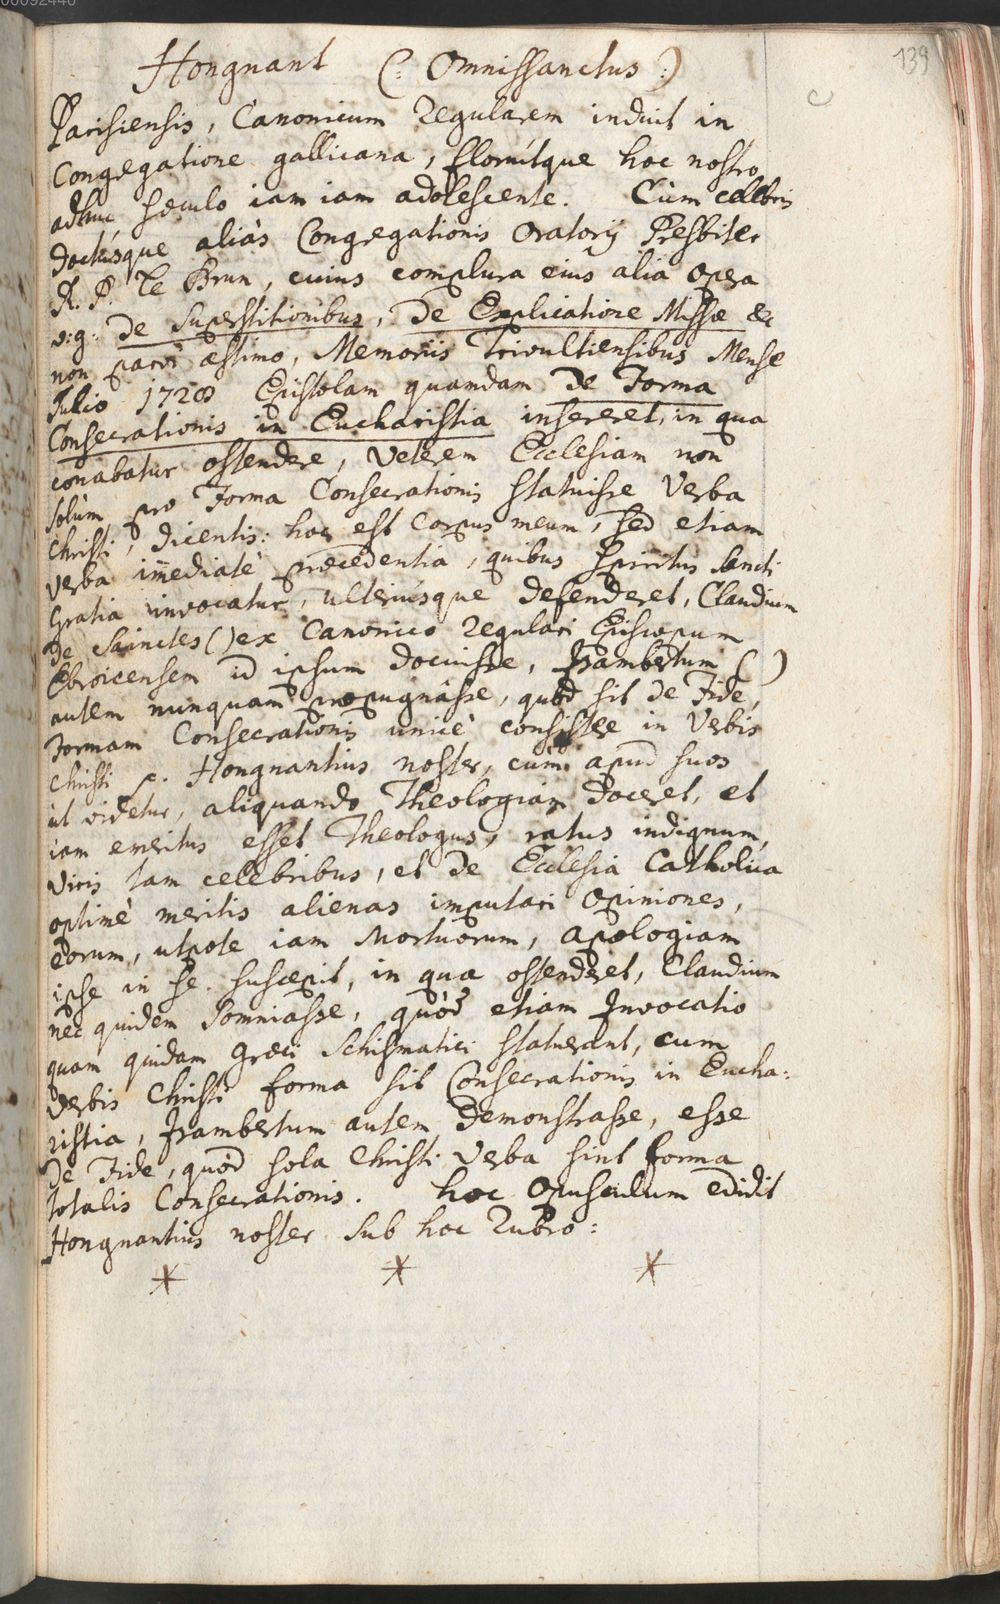 00092440
139
Hongnant (: Omnissanctus :)
Parisiensis, Canonicum Regularem induit in
Congregatione gallicana, floruitque hoc nostro
adhuc sæculo iam iam adolescente. Cùm celebris
doctusque aliàs Congregationis Oratorij Presbiter
R. P. le Brun, cuius complura eius alia opera
v: g: de Superstitionibus, De Explicatione Missæ &c
non parvi æstimo, Memoriis Trivultiensibus Mense
Julio 1728 Epistolam quamdam De Forma
Consecrationis in Eucharistia insereret, in qua
conabatur ostendere, Veterem Ecclesiam non
solùm pro Forma Consecrationis statuisse Verba
Christi, dicentis: hoc est Corpus meum, sed etiam
verba im̅ediatè præcedentia, quibus Spiritus Sancti
Gratia invocatur, ulteriùsque defenderet, Claudium
de Sainctes () ex Canonico Regulari Episcopum
Ebroicensem id ipsum docuisse, Isambertum ()
autem nunquam propugnâsse, quòd sit de Fide,
Formam Consecrationis unicè consistere in Verbis
Christi Hongnantius noster, cùm apud suos
ut videtur, aliquando Theologiam doceret, et
iam emeritus esset Theologus, ratus indignum,
Viris tam celebribus, et de Ecclesia Catholica
optimè meritis alienas imputari Opiniones,
eorum, utpote iam Mortuorum, apologiam
ipse in se suscepit, in qua ostenderet, Claudium
nec quidem somniasse, quòd etiam Invocatio
quam quidam Græci Schismatici statuerant, cum
Verbis Christi forma sit Consecrationis in Eucha:
ristia, Isambertum autem demonstrasse, esse
de Fide, quòd sola Christi Verba sint forma
totalis Consecrationis. hoc Opusculum edidit
Hongnantius noster sub hoc Rubro:
* * *